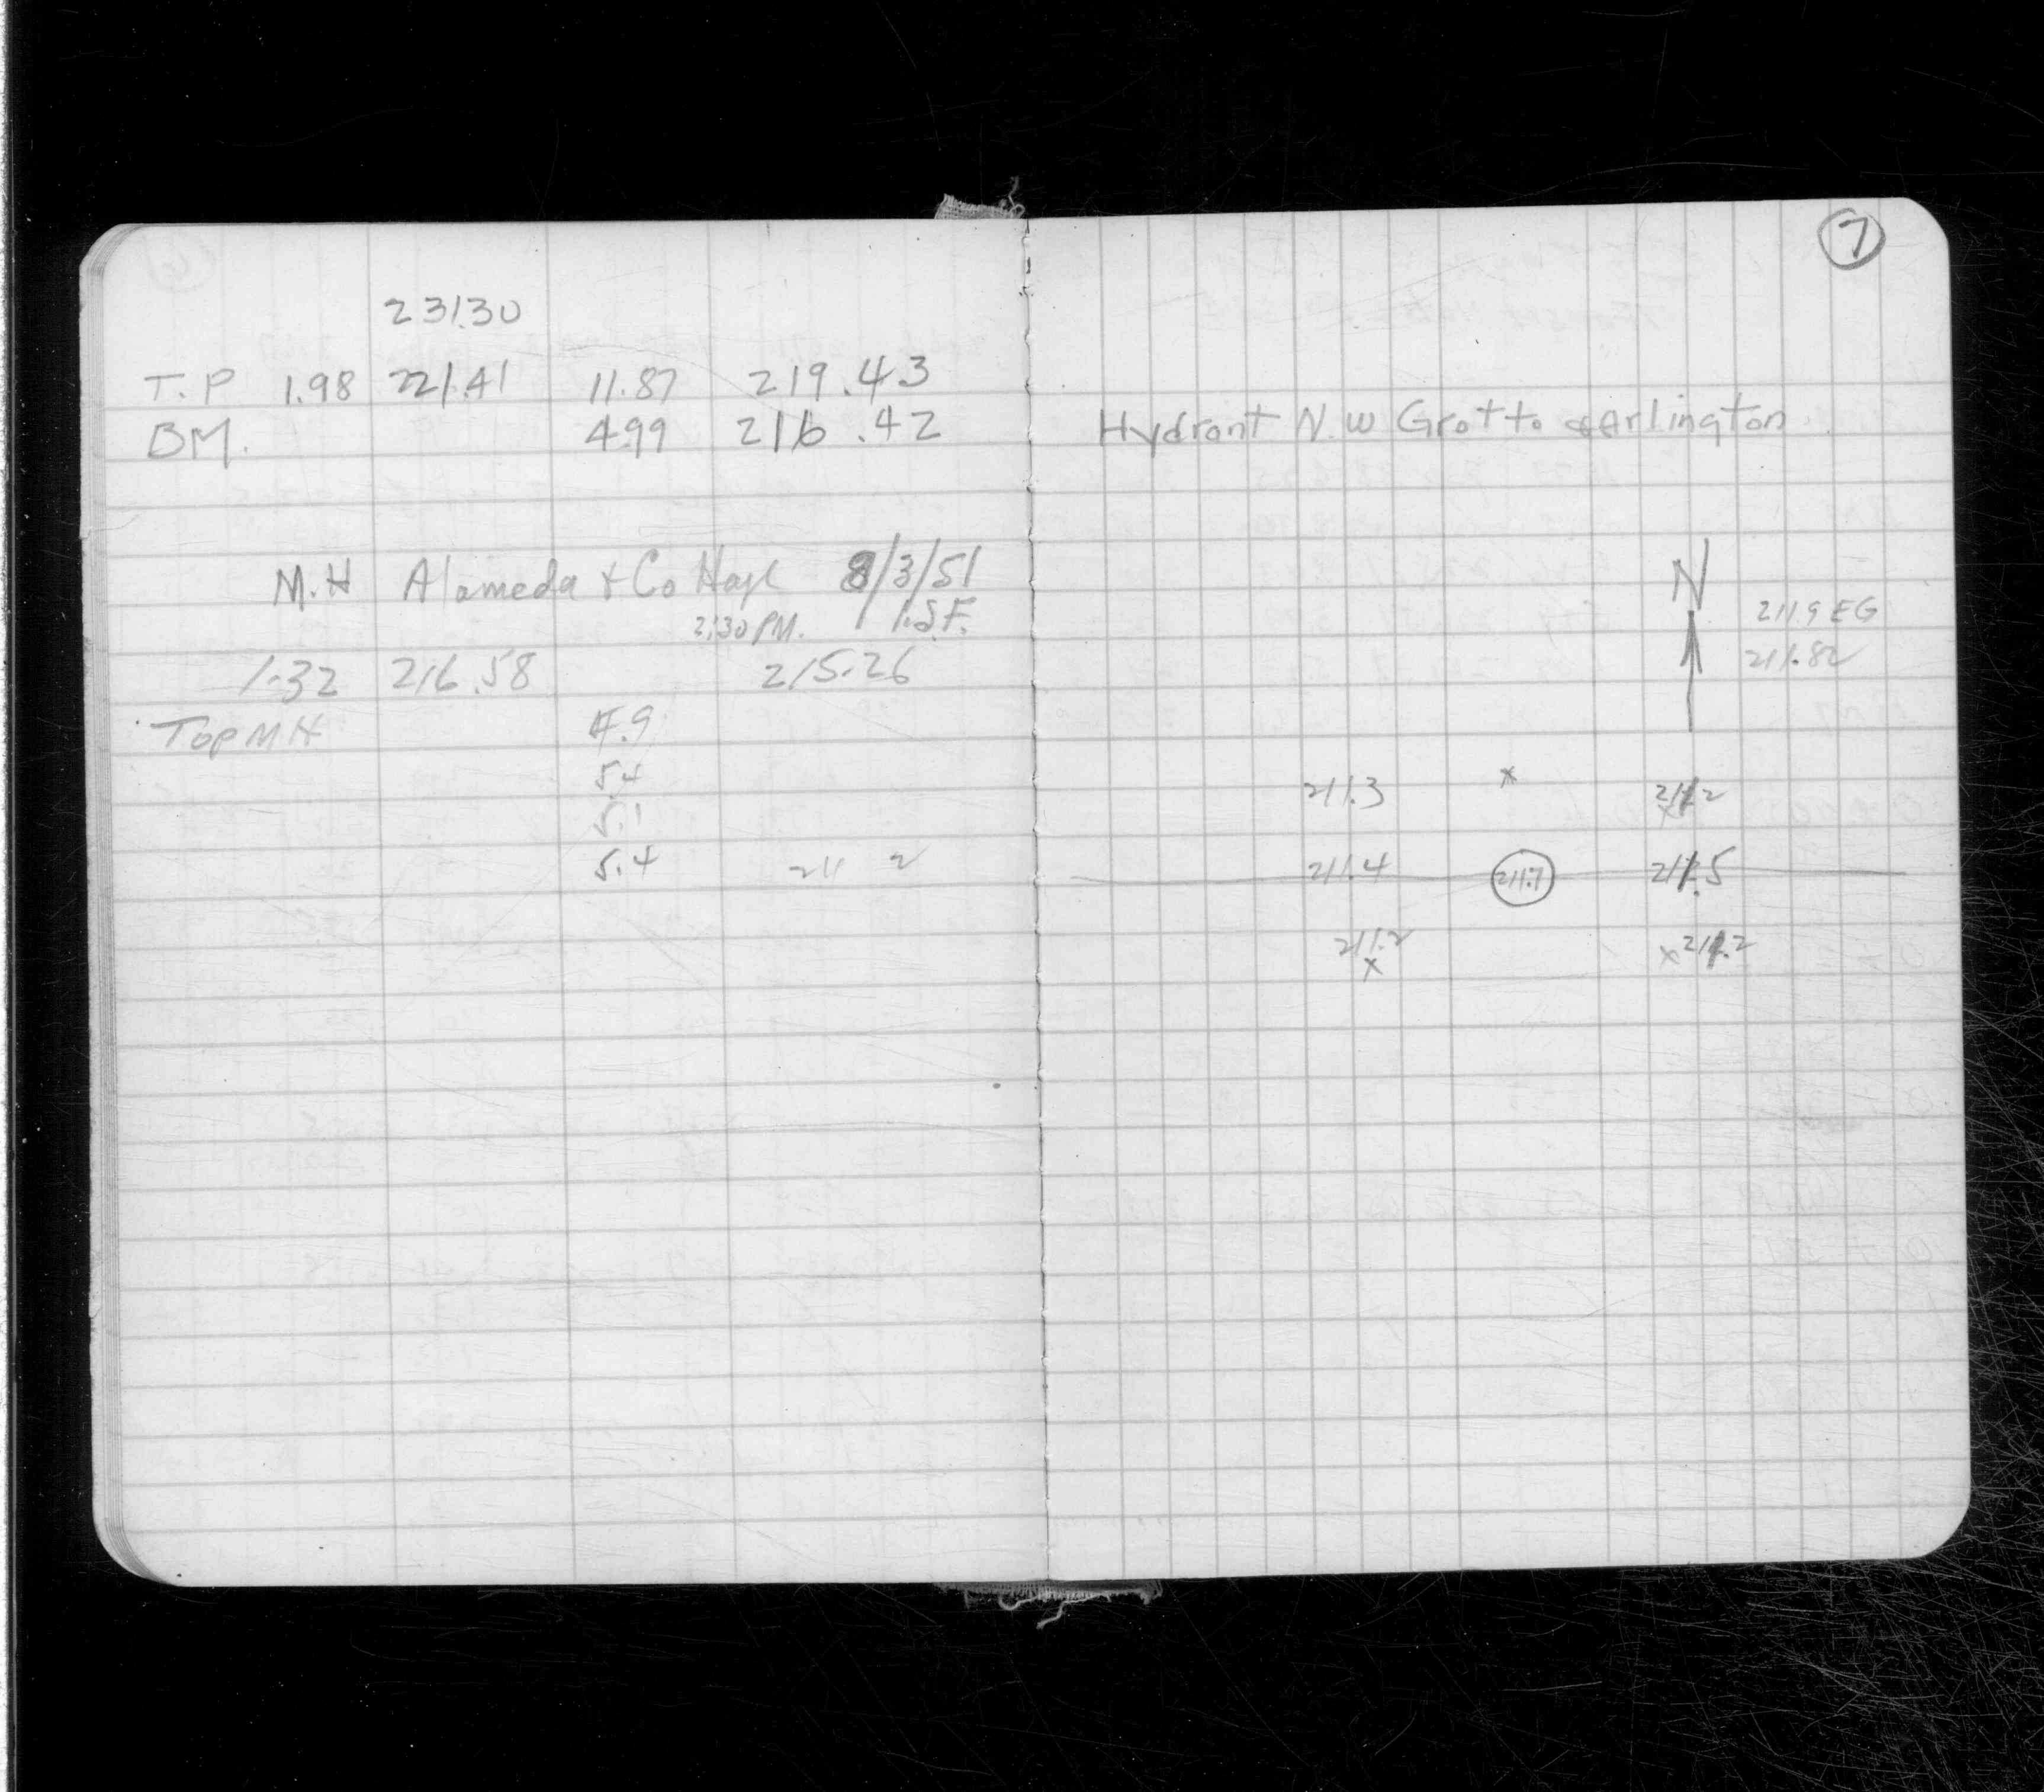 231.30
T.P 1.98 221.41 11.87 219.43
BM. 4.99 216.42
M.H Alameda + Co Hosp 8/3/51
2:30 PM. I.S.F.
1.32 216.58 215.26
Top MH 4.9
5.4
5.1
5.4 211 2
7
Hydrant N.W Grotto & Arlington
N
211.9 EG
211.82
211.3 x 211.2
x
211.4 211.7 211.5
211.2 x 211.2
x